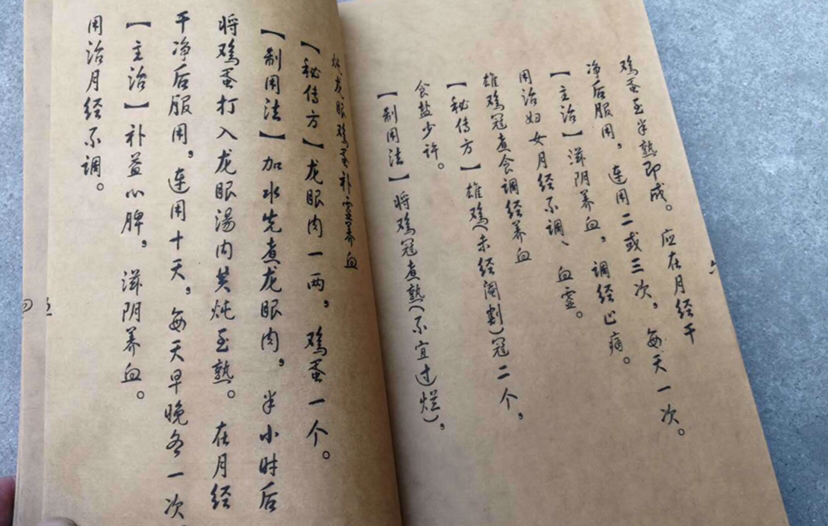 鸡蛋至半熟即成。应在月经干
净后服用,连用二或三次,每天一次。
【主治】滋阴养血,调经止痛。
用治妇女月经不调、血虚。
雄鸡冠煮食调经养血
【秘传方】雄鸡(未经阉割)冠二个,
食盐少许。
【制用法】将鸡冠煮熟(不宜过烂),
龙眼鸡蛋补虚养血
【秘传方】龙眼肉一两,鸡蛋一个。
【制用法】加水先煮龙眼肉,半小时后
将鸡蛋打入龙眼汤内共炖至熟。在月经
干净后服用,连用十天,每天早晚各一次。
【主治】补益心脾,滋阴养血。
用治月经不调。